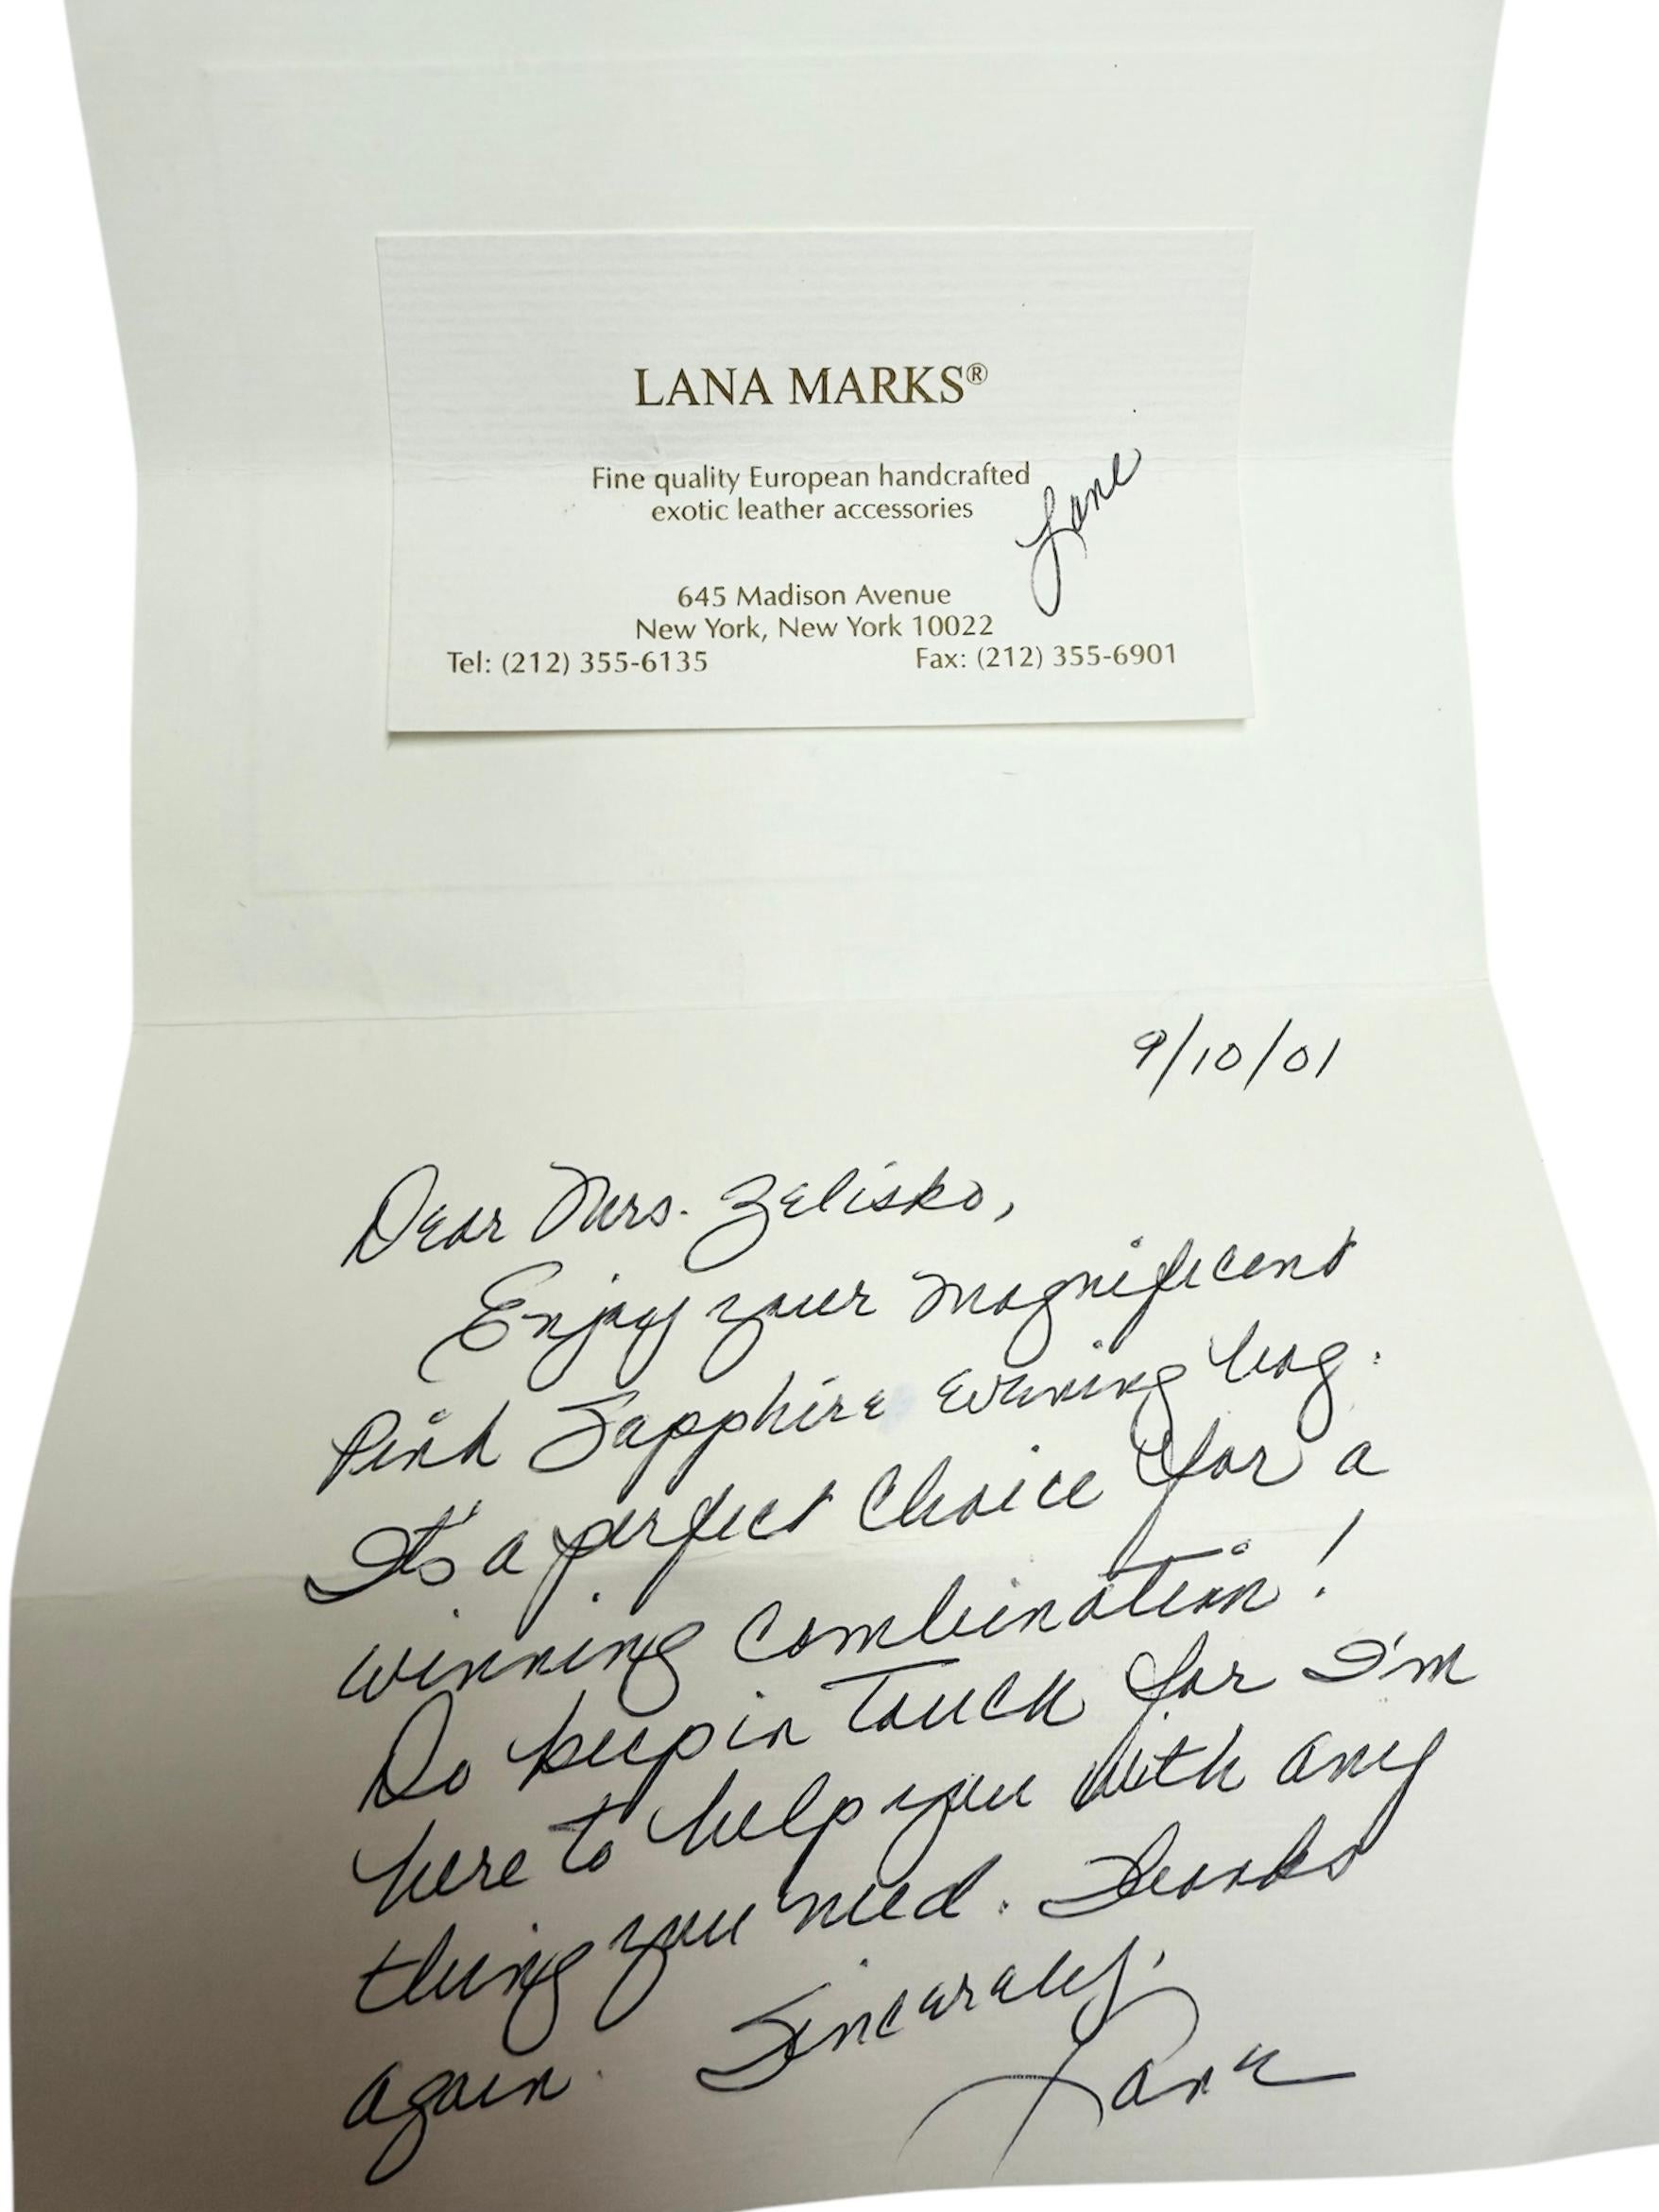 LANA MARKS®
Fine quality European handcrafted
exotic leather accessories
645 Madison Avenue
New York, New York 10022
Tel: (212) 355-6135 Fax: (212) 355-6901
9/10/01
Dear Mrs. Zelisko,
Enjoy your magnificent
Pink Sapphire evening bag.
It's a perfect choice for a
winning combination!
Do keep in touch for I'm
here to help you with any
thing you need. Thanks
again. Sincerely,